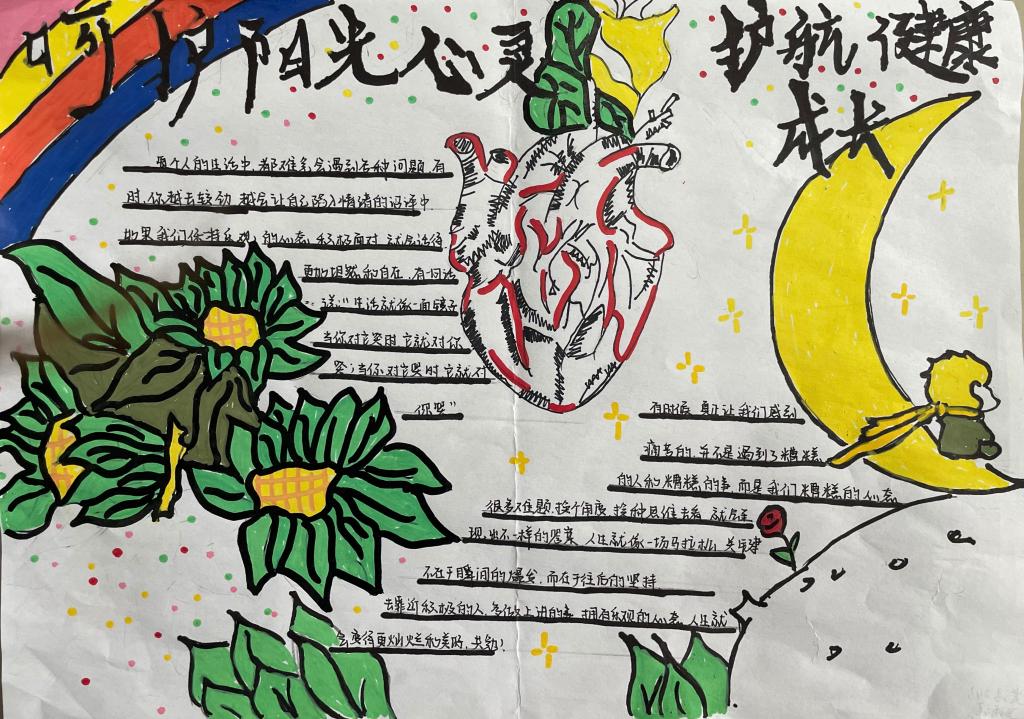 呵护阳光心灵 护航健康
成长
每个人的生活中,都难免会遇到各种问题,有
时,你越去较劲,越会让自己陷入情绪的沼泽中
如果我们保持乐观的心态,积极面对,就会活得
更加坦然和自在,有句话
说:"生活就像一面镜子
当你对它笑时,它就对你
笑;当你对它哭时,它就对
你哭"
有时候,真正让我们感到
痛苦的,并不是遇到了糟糕
的人和糟糕的事,而是我们糟糕的心态
很多难题,换个角度,换种思维去看,就会发
现,出不一样的答案,人生就像一场马拉松,关键
不在于瞬间的爆发,而在于往后的坚持
去靠近积极的人,多做上进的事,拥有乐观的心态,人生就
会变得更灿烂和美好,共勉!